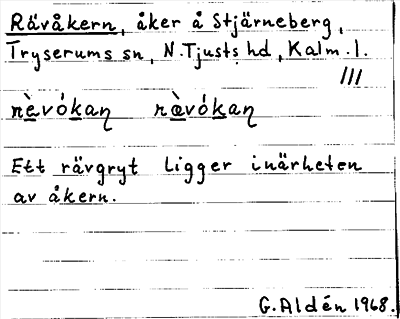 Rävåkern, åker å Stjärneberg,
Tryserums sn, N.Tjusts hd, Kalm. l.
///
rὲvókaɳ rὲvókaɳ
Ett rävgryt ligger inärheten
av åkern.
G. Aldén 1968.